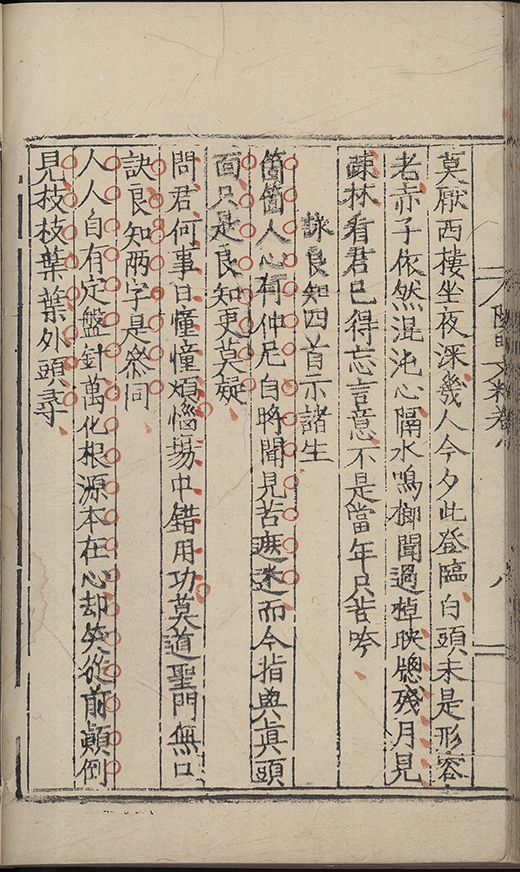 陽明文粹卷八
八
莫厭西樓坐夜深幾人今夕此登臨白頭未是形容
老赤子依然混沌心隔水鳴榔聞過棹映窻殘月見
疎林看君已得忘言意不是當年只苦吟
詠良知四首示諸生
箇箇人心有仲尼自將聞見苦遮迷而今指與真頭
面只是良知更莫疑
問君何事日憧憧煩惱場中錯用功莫道聖門無口
訣良知兩字是參同
人人自有定盤針萬化根源本在心却笑從前顛倒
見枝枝葉葉外頭尋